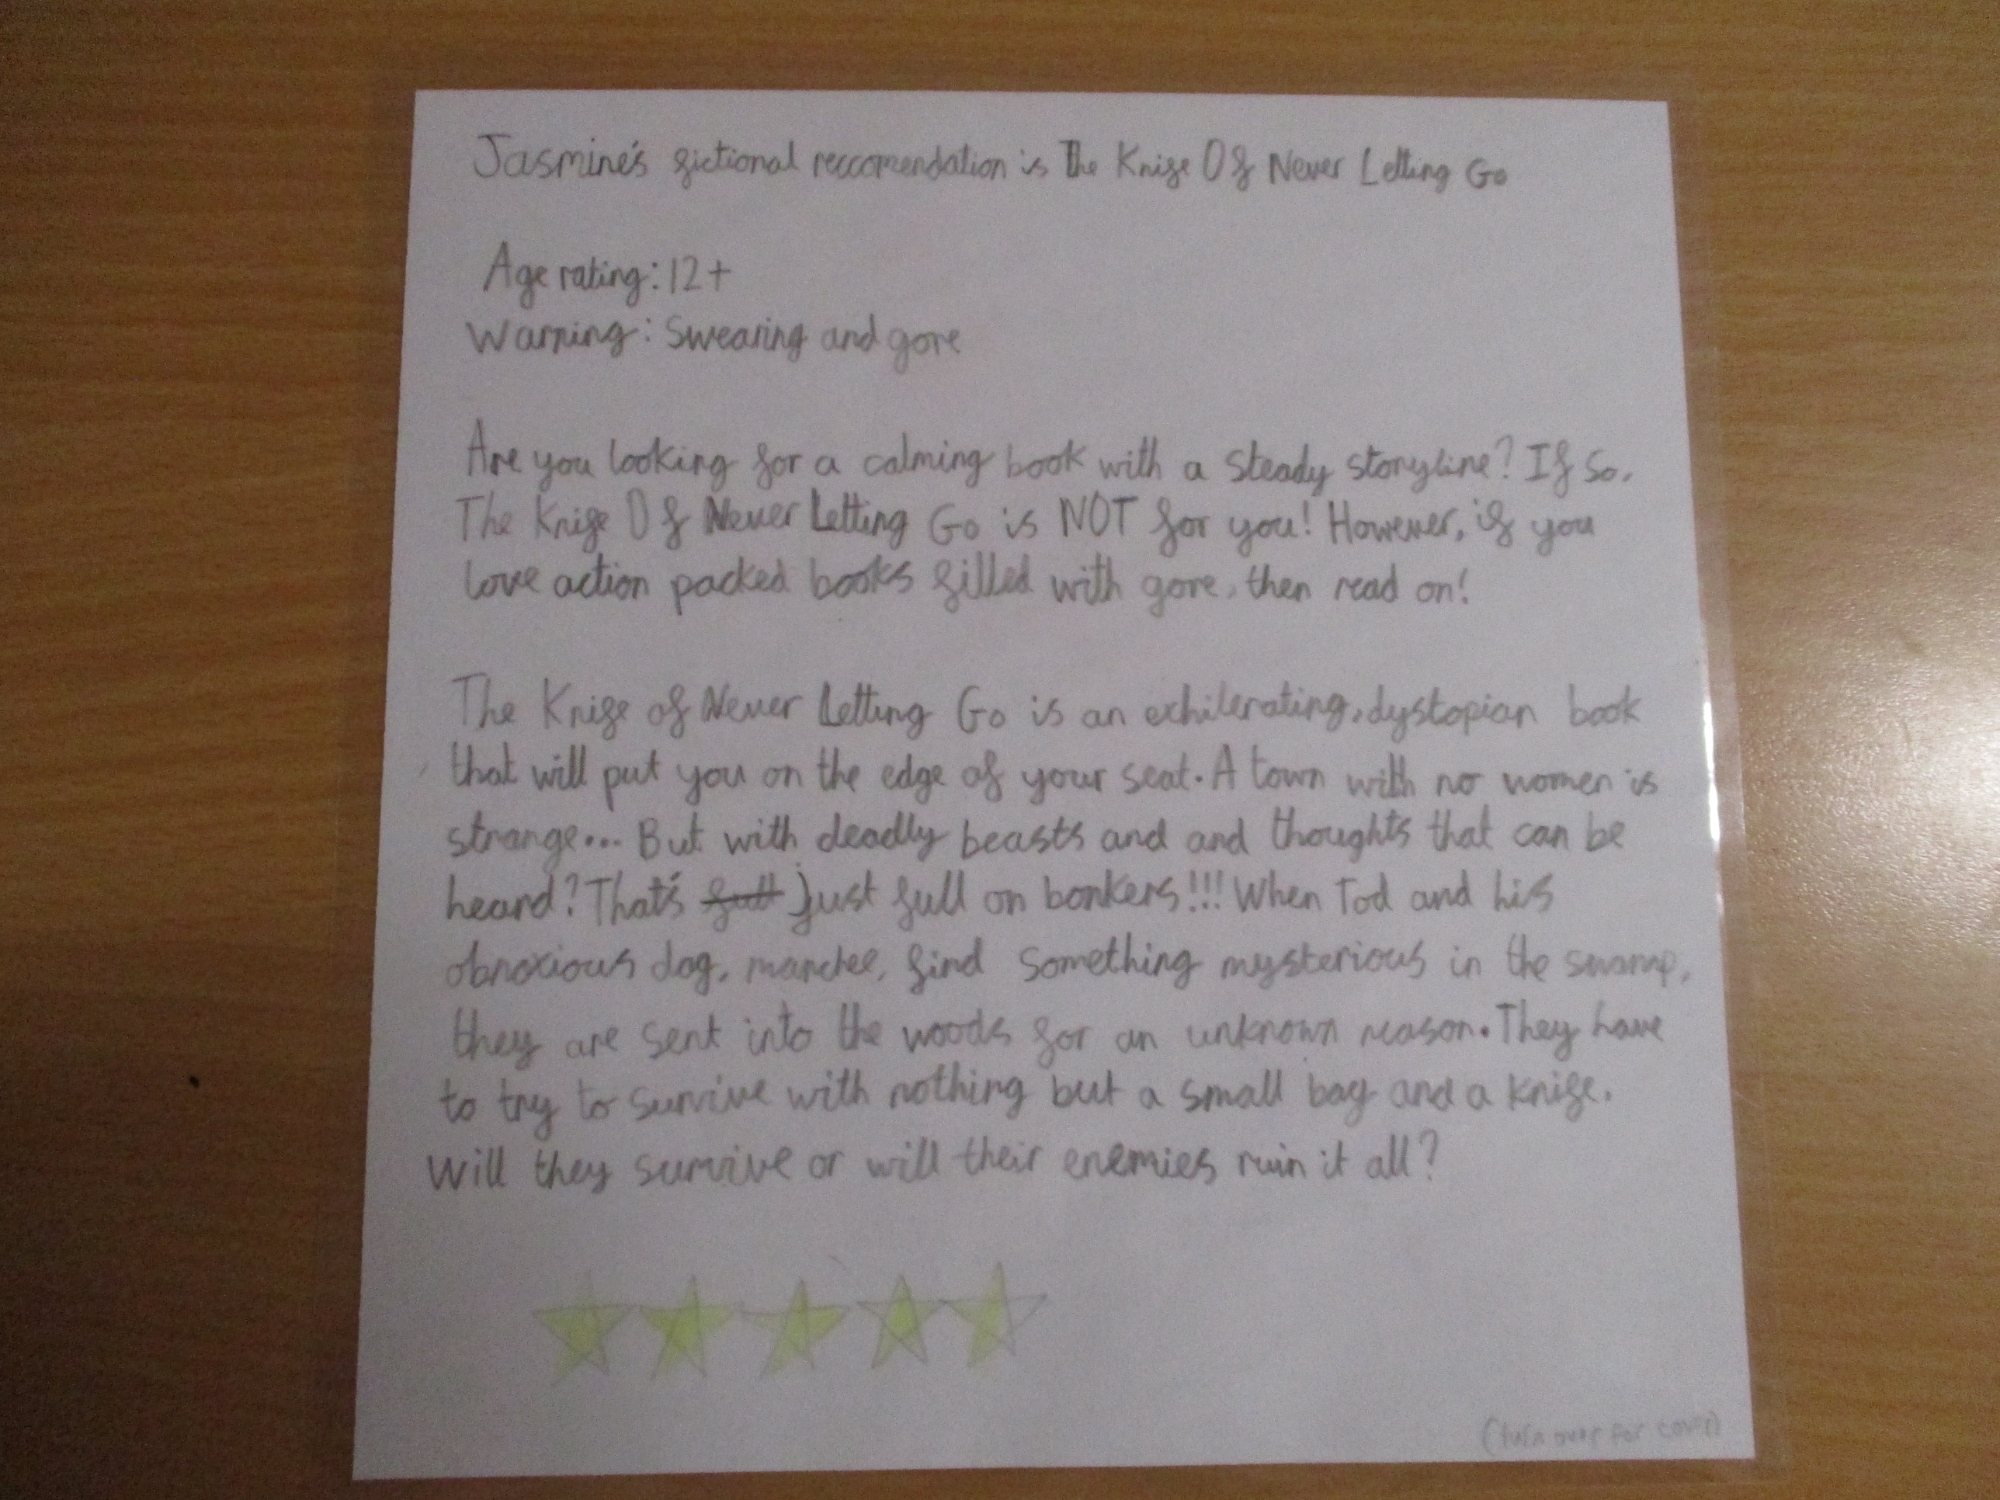 Jasmine's fictional reccomendation is The Knife Of Never Letting Go
Age rating: 12+
Warning: Swearing and gore
Are you looking for a calming book with a steady storyline? If so,
The Knife Of Never Letting Go is NOT for you! However, if you
love action packed books filled with gore, then read on!
The Knife of Never Letting Go is an exhilerating, dystopian book
that will put you on the edge of your seat. A town with no women is
strange... But with deadly beasts and and thoughts that can be
heard? That's full just full on bonkers!!! When Tod and his
obnoxious dog, manchee, find something mysterious in the swamp,
they are sent into the woods for an unknown reason. They have
to try to survive with nothing but a small bag and a knife.
Will they survive or will their enemies ruin it all?
(turn over for cover)